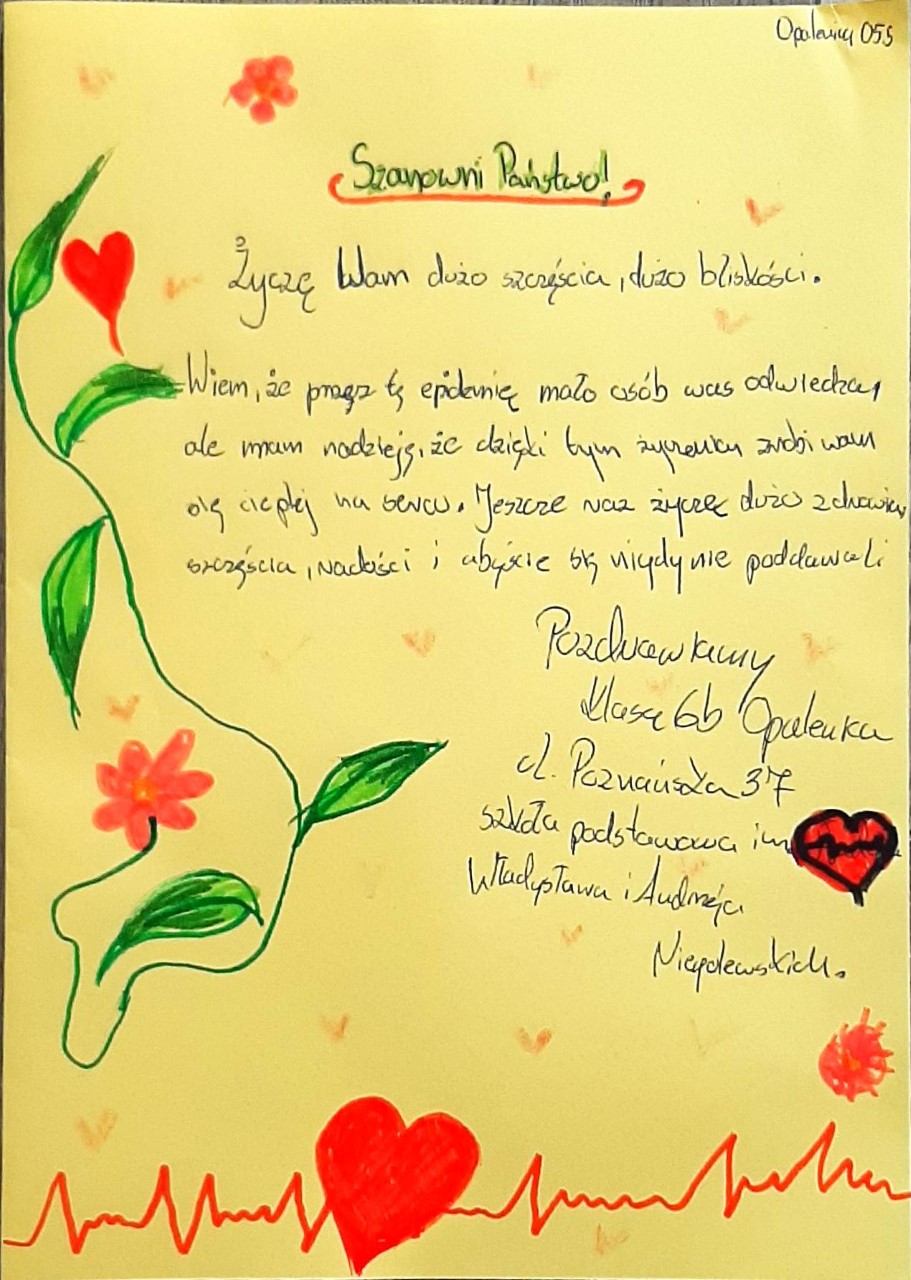 Szanowni Państwo!
Życzę Wam dużo szczęścia, dużo bliskości.
Wiem, że przez tę epidemię mało osób was odwiedza,
ale mam nadzieję, że dzięki tym życzeniu zrobi wam
się cieplej na sercu. Jeszcze raz życzę dużo zdrowia,
szczęścia, radości i abyście się nigdy nie poddawali
Pozdrawiamy
klasa 6b Opalenica
ul. Poznańska 37
szkoła podstawowa im
Władysława i Andrzeja
Niegolewskich.